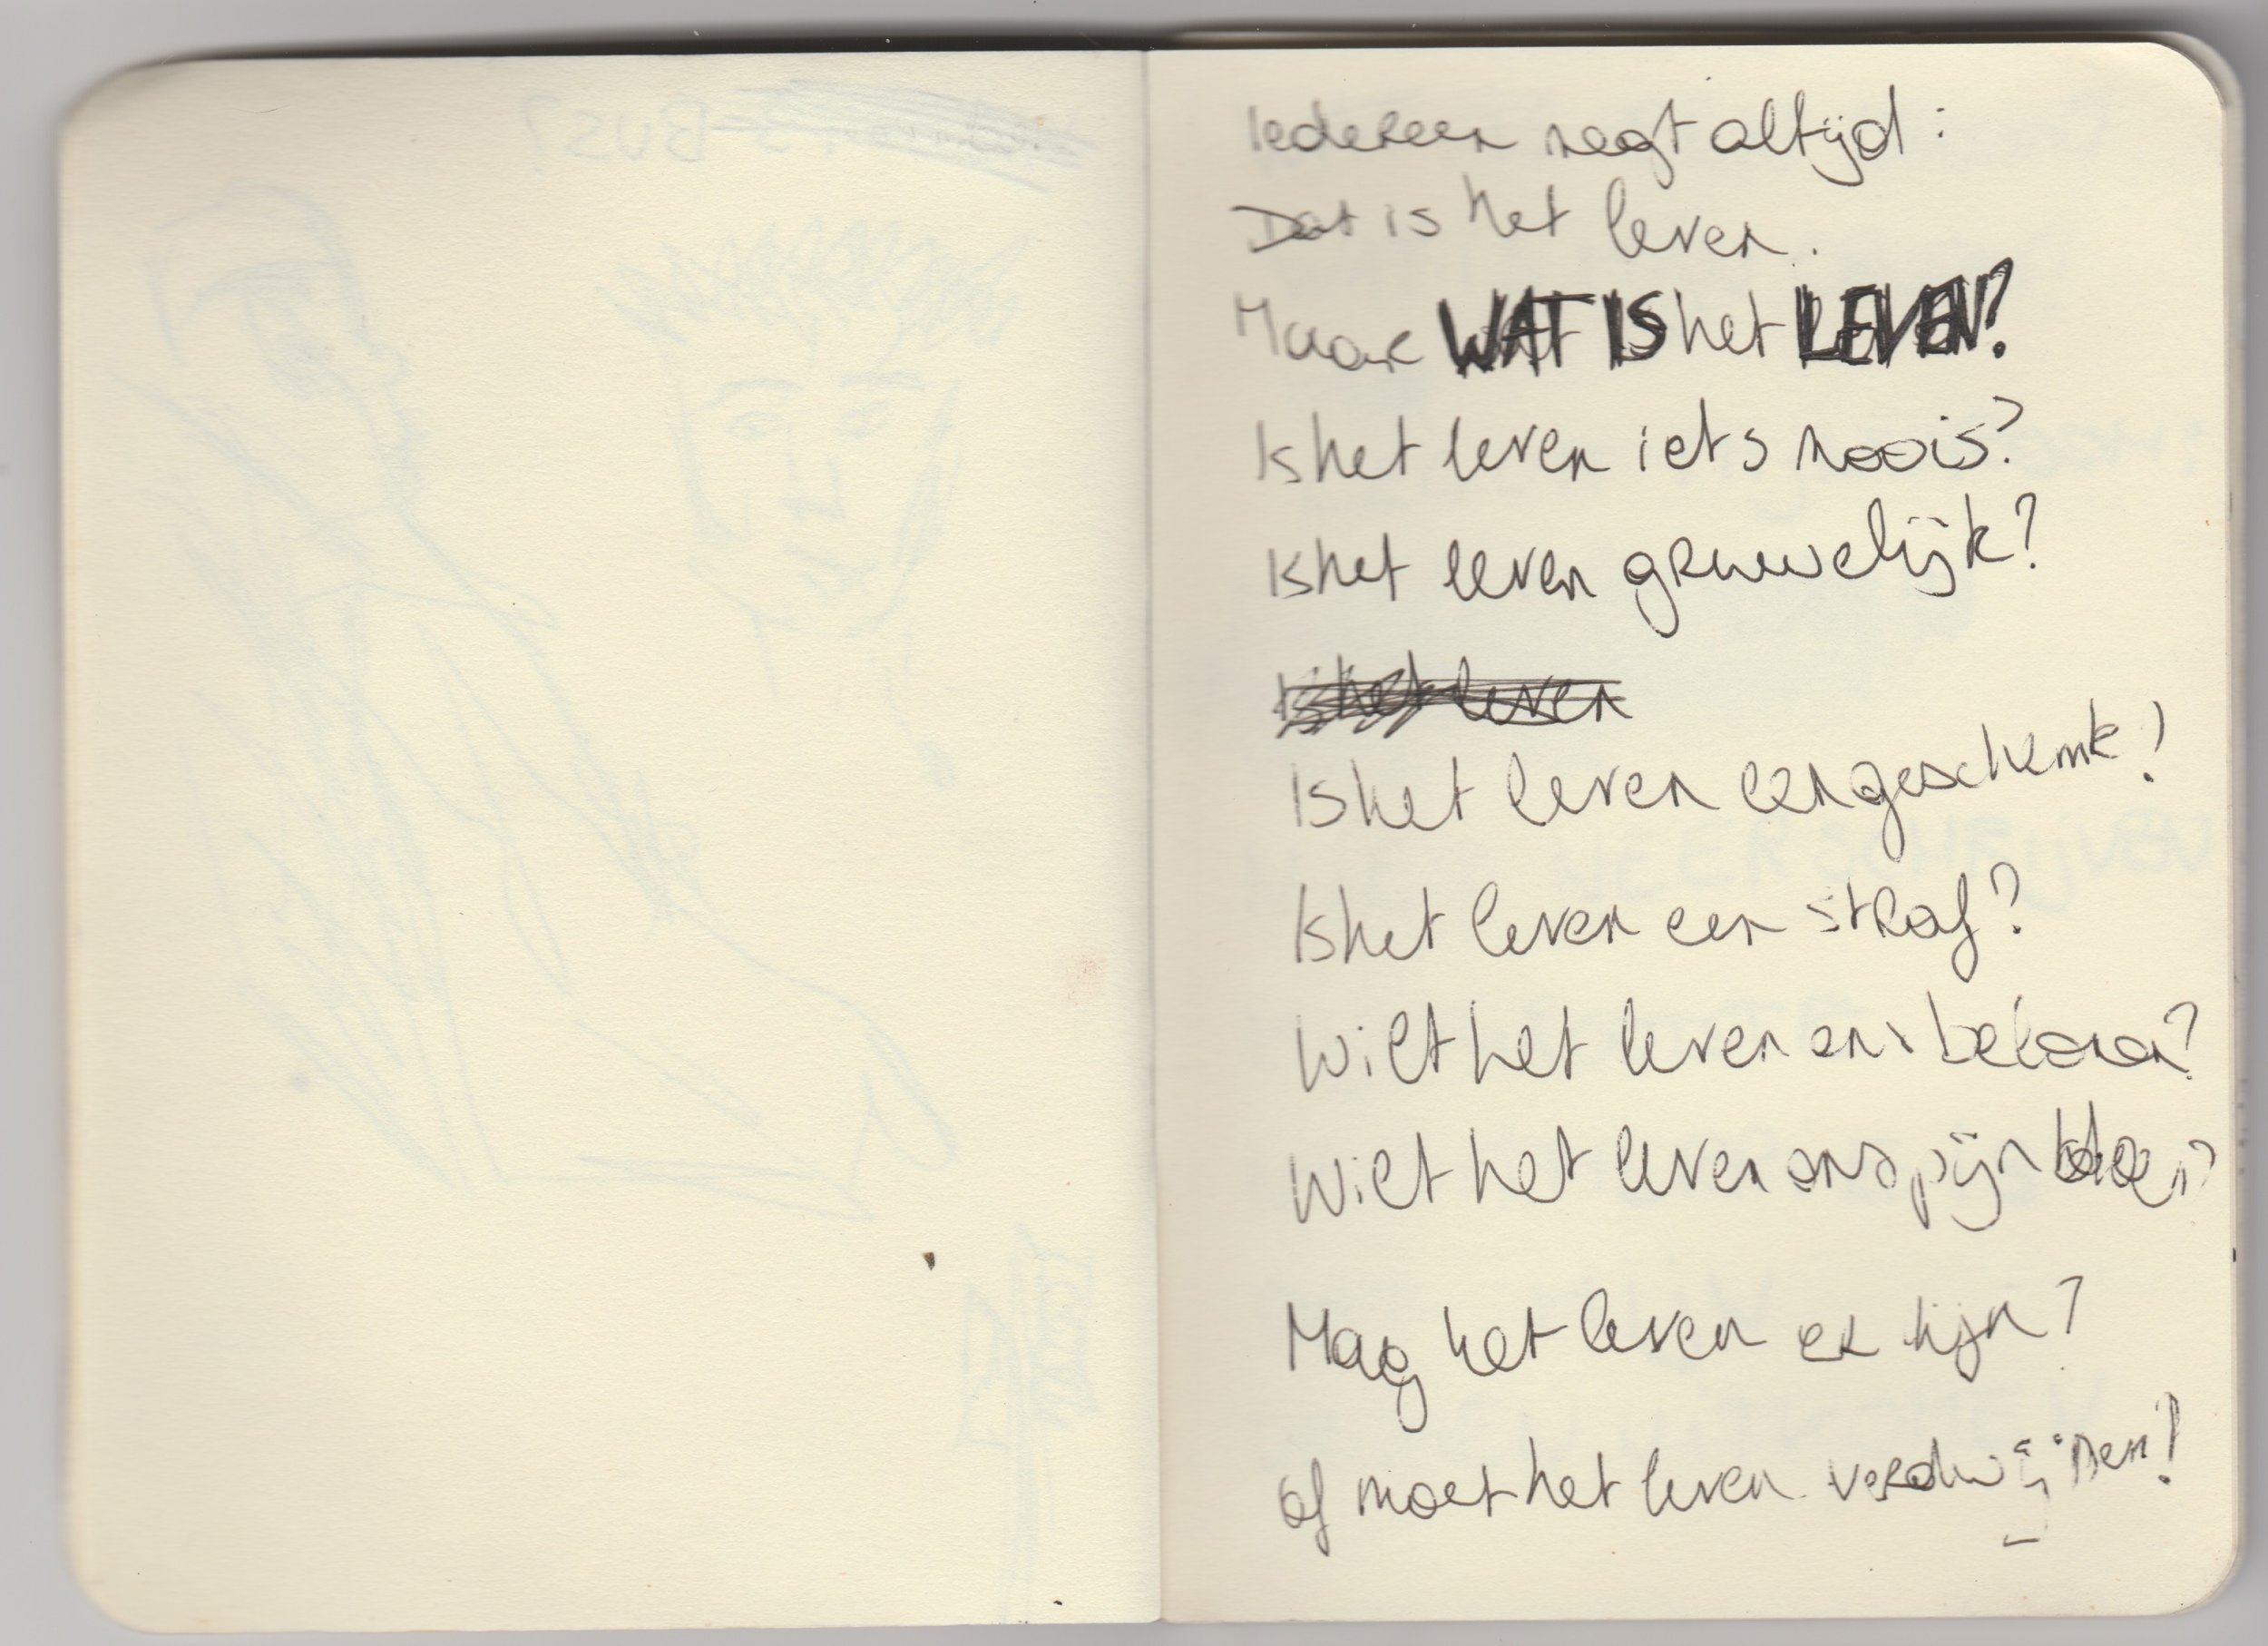 BUS?
Iedereen zegt altijd:
Dat is het leven.
Maar WAT IS het LEVEN?
Is het leven iets moois?
Is het leven gruwelijk?
Is het leven
Is het leven een geschenk?
Is het leven een straf?
Wilt het leven ons belonen?
Wilt het leven ons pijn doen?
Mag het leven er zijn?
Of moet het leven verdwijnen?